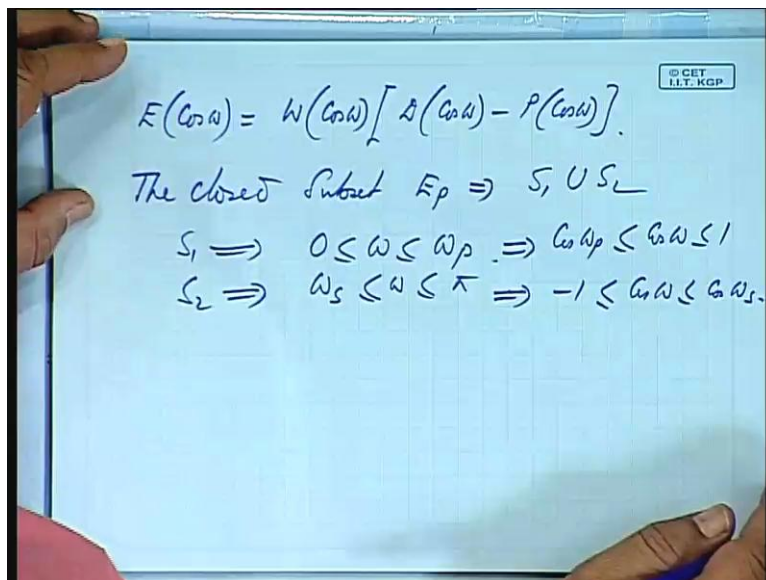 © CET
I.I.T. KGP
E(Cosω) = W(Cosω)[D(Cosω) – P(Cosω)].
The closed Subset Ep ⇒ S₁ ∪ S₂
S₁ ⇒ 0 ≤ ω ≤ ωp. ⇒ Cosωp ≤ Cosω ≤ 1
S₂ ⇒ ωs ≤ ω ≤ π ⇒ -1 ≤ Cosω ≤ Cosωs.